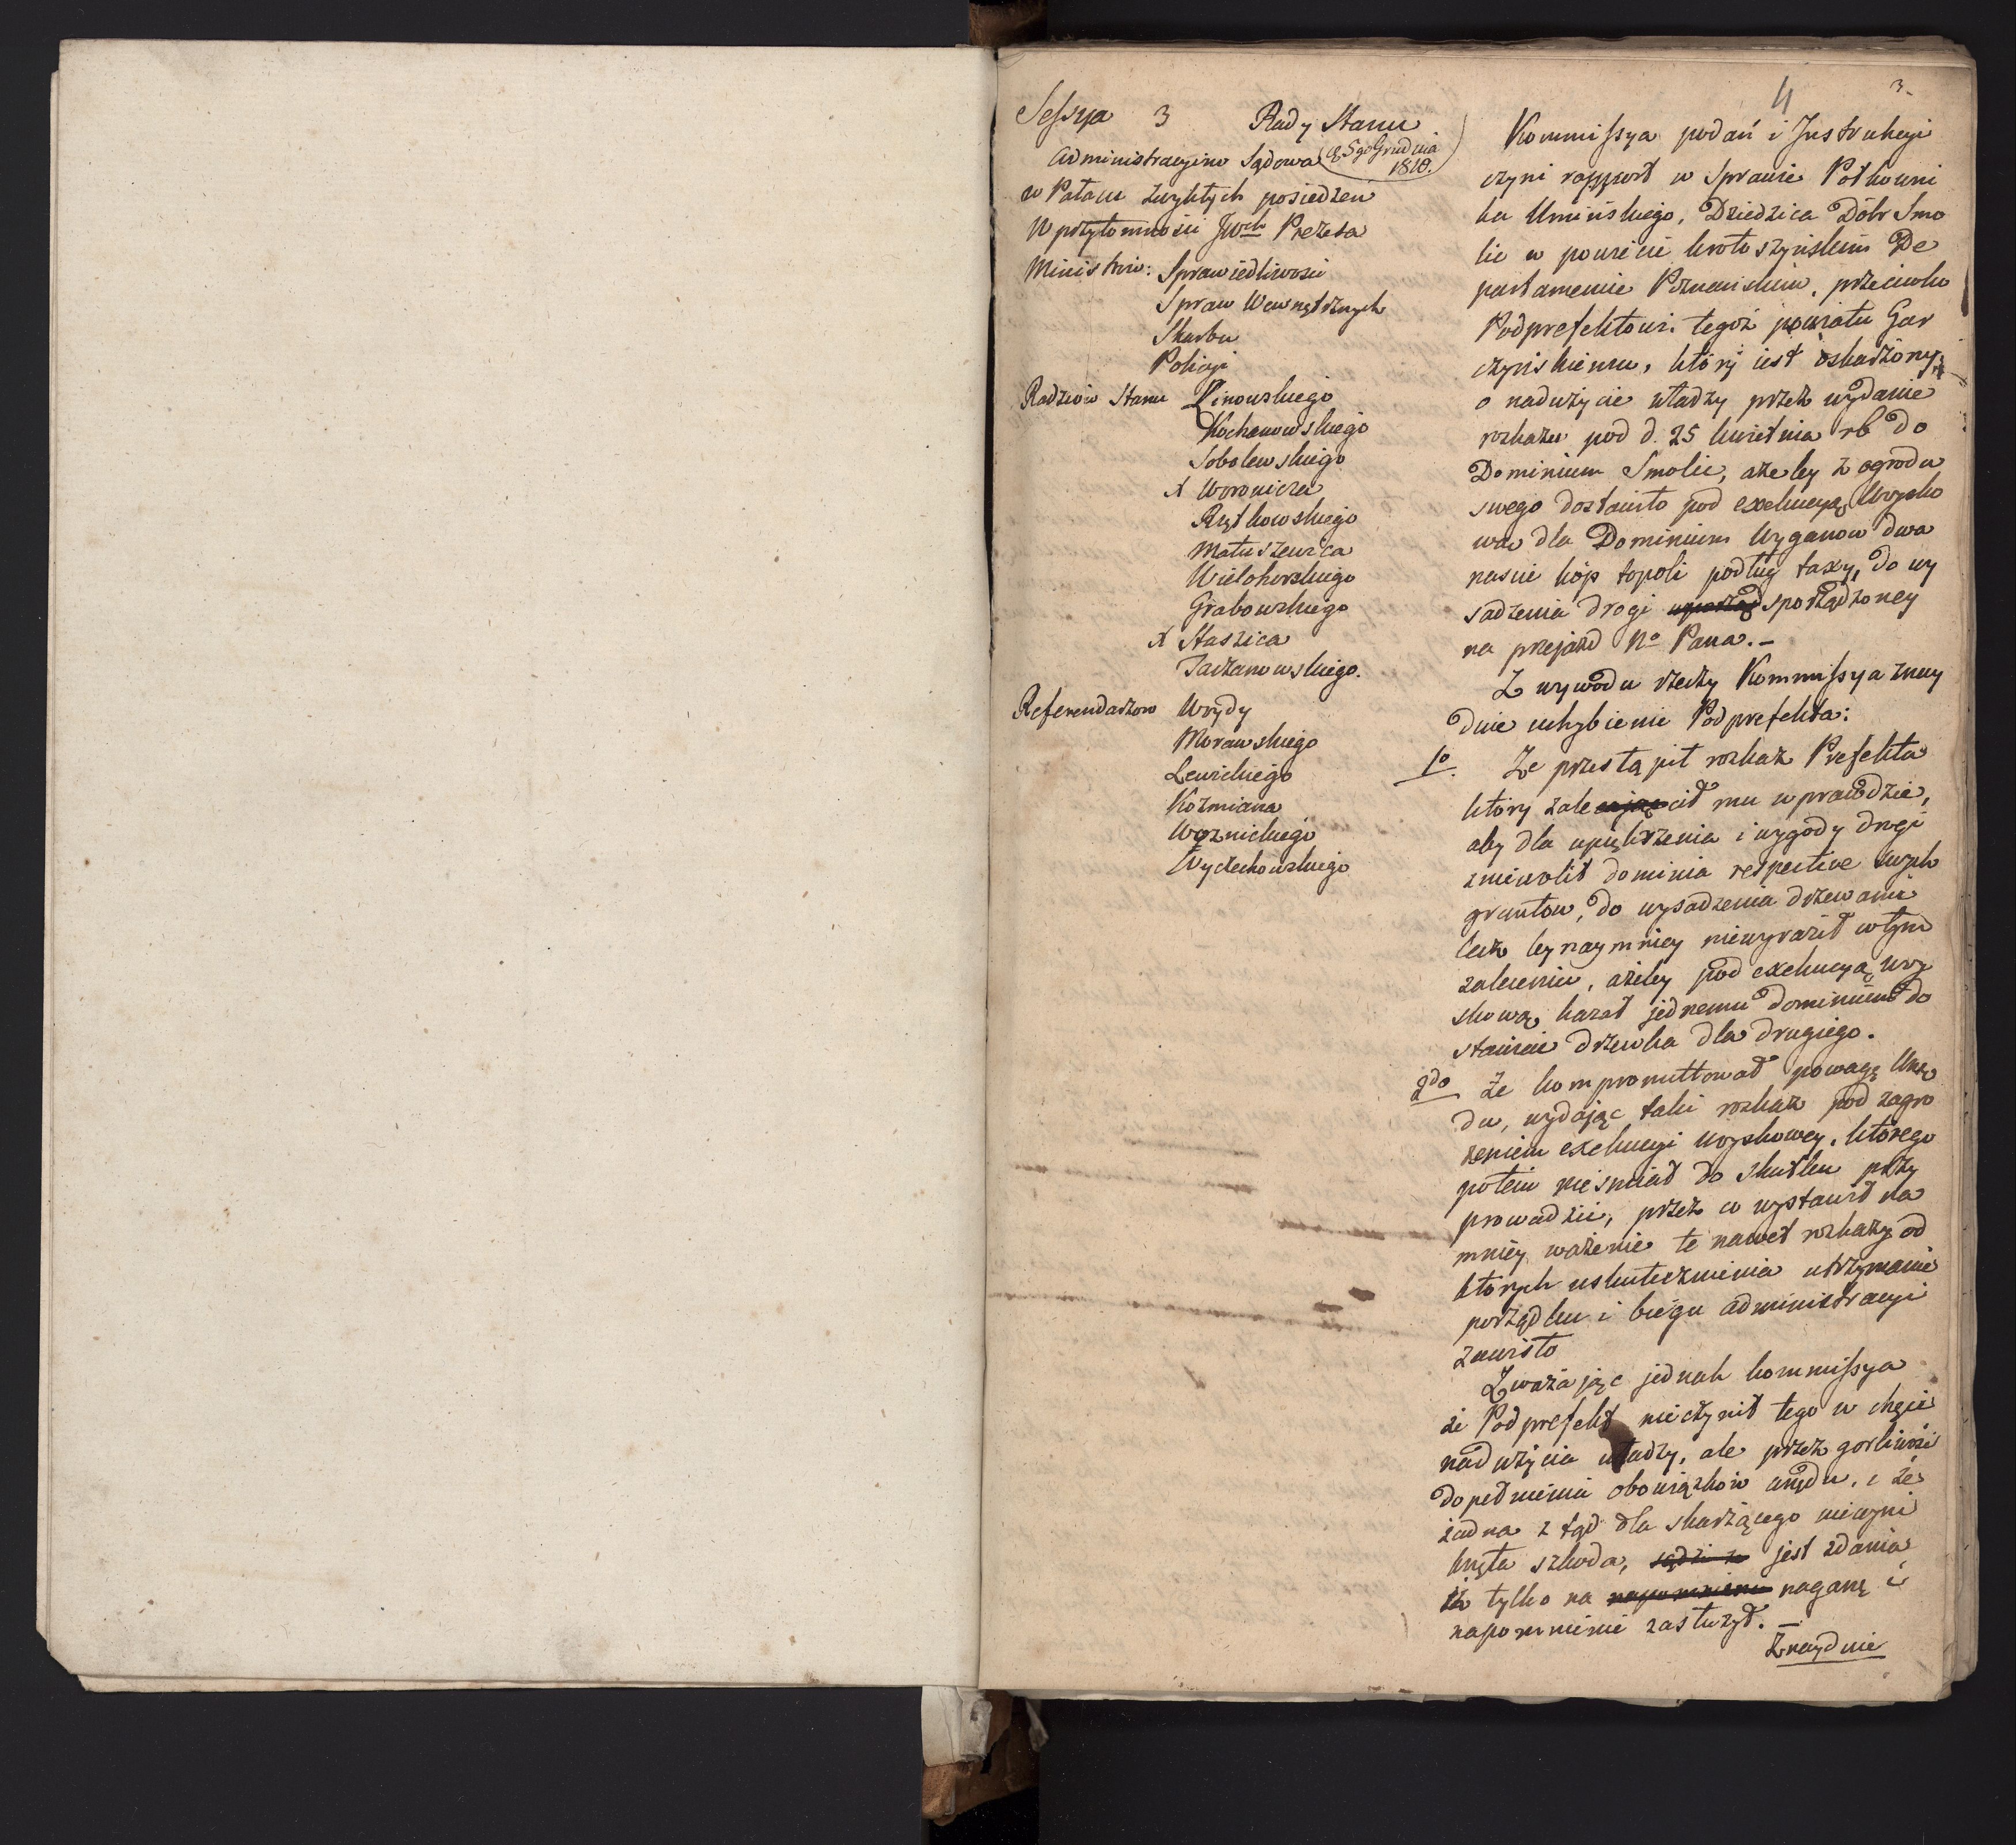 4
3.
Sessya 3 Rady Stanu
Administracyino Sądowa (d. 5go Grudnia
1810.
w Pałacu zwykłych posiedzeń
W przytomności JWch Prezesa
Ministrów: Sprawiedliwości
Spraw Wewnętrznych
Skarbu
Policyi
Radzców Stanu Linowskiego
Kochanowskiego
Sobolewskiego
X Woronicza
Rętkowskiego
Matuszewica
Wielohorskiego
Grabowskiego
X Staszica
Tarzanowskiego.
Referendarzow Woydy
Morawskiego
Lewickiego
Kozmiana
Woznickiego
Wyczechowskiego
Kommissya podań i Instrukcyi
czyni rapport w Sprawie Półkowni
ka Umińskiego, Dziedzica Dóbr Smo
lic w powiecie krotoszyńskim De
partamencie Poznańskim, przeciwko
Podprefektowi tegoż powiatu Gar
czyńskiemu, który iest oskarżony
o nadużycie władzy przez wydanie
rozkazu pod d. 25 kwietnia rb do
Dominium Smolic, ażeby z ogrodu
swego dostawiło pod exekucyą Woysko
wą dla Dominium Wyganow dwa
naście kóp topoli podług taxy, do wy
sadzenia drogi sporządzoney
na przejazd No Pana. –
Z wywodu rzeczy Kommissya znay
duie uchybienie Podprefekta:
1o. Że przestąpił rozkaz Prefekta
który zalecił mu wprawdzie,
aby dla upiększenia i wygody drogi
zniewolił dominia respective swych
gruntow, do wysadzenia drzewami
lecz bynaymniey niewyraził w tym
zaleceniu, ażeby pod exekucyą woy
skową kazał jednemu dominium do
stawiać drzewka dla drugiego.
2do Że kompromittował powagę Urzę
du, wydając taki rozkaz pod zagro
żeniem exekucyi woyskowey, którego
potem nieśmiał do skutku przy
prowadzić, przez co wystawił na
mniey ważenie te nawet rozkazy od
których uskutecznienia utrzymanie
porządku i biegu administracyi
zawisło
Zważając jednak kommissya
że Podprefekt nieczynił tego w chęci
nadużycia władzy, ale przez gorliwość
dopełnienia obowiązków urzędu, i że
żadna z tąd dla skarżącego niewyni
knęła szkoda, jest zdania
iż tylko na naganę i
napomnienie zasłużył. –
Znayduie